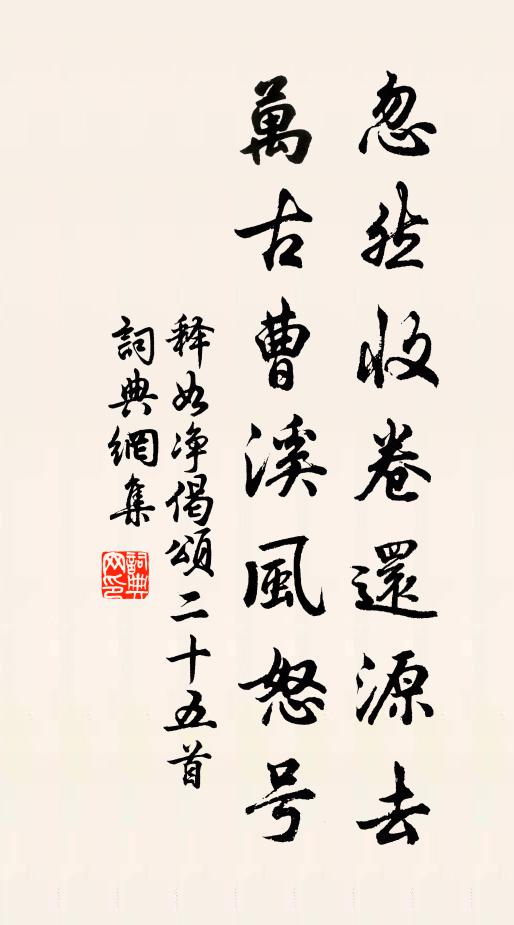 忽然收卷還源去
萬古曹溪風怒号
释如净偈頌二十五首
詞典網集
詞典网印